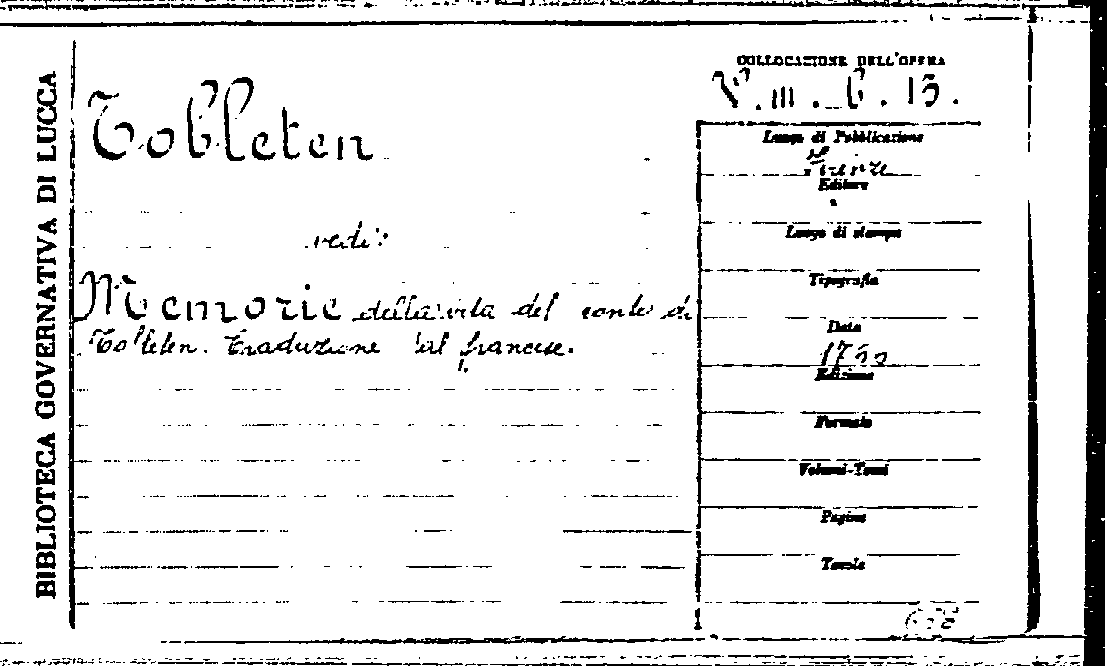 BIBLIOTECA GOVERNATIVA DI LUCCA
Tobleten
vedi:
Memorie della vita del conte di
Tobleten. Traduzione dal francese.
COLLOCAZIONE DELL'OPERA
V. III. 6. 15.
Luogo di Pubblicazione
Firenze
Editore
Luogo di stampa
Tipografia
Data
Edizione
Formato
Volumi-Tomi
Pagine
Tavole